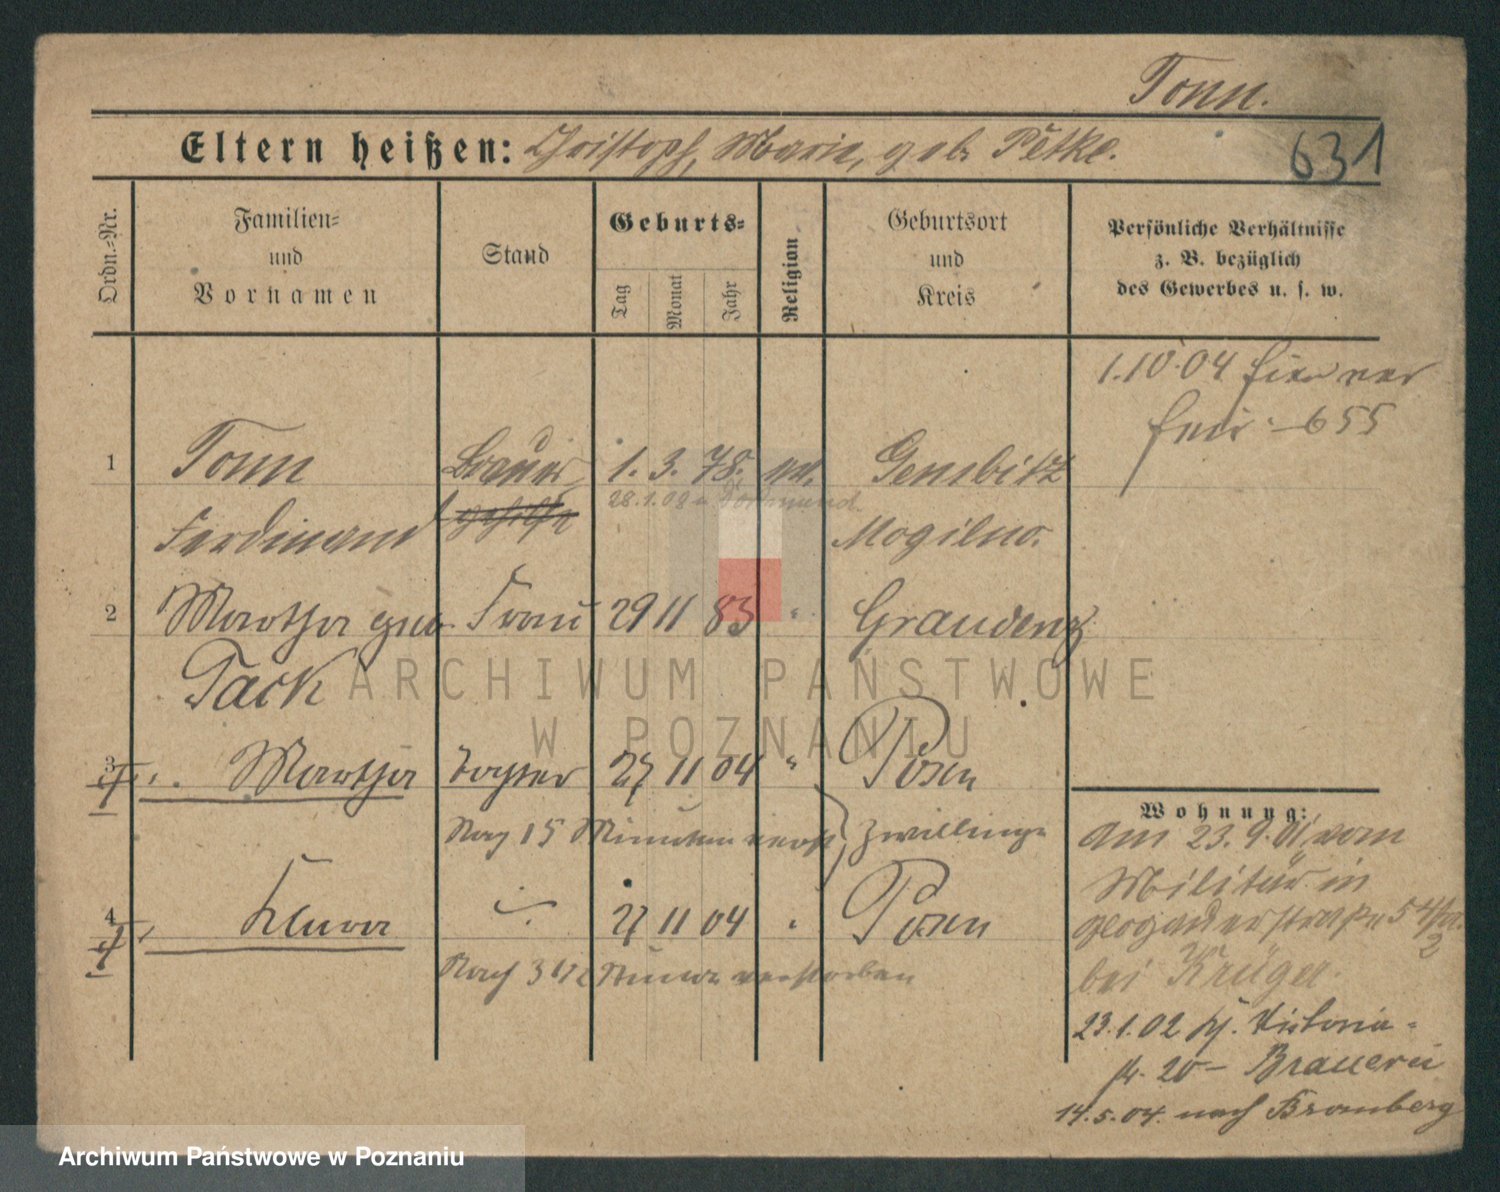 Tonn.
Eltern heißen: Christoph, Marie, geb. Petke.
631
Ordn.-Nr.
Familien-
und
Vornamen
Stand
Geburts-
Tag
Monat
Jahr
Religion
Geburtsort
und
Kreis
Persönliche Verhältnisse
z. B. bezüglich
des Gewerbes u. s. w.
1.10.04
655
1 Tonn Brauer 1. 3. 78. ev. Gembitz
gehilfe 28.1.08 n. Dortmund.
Ferdinand Mogilno.
2 Martha geb. Frau 29 11 83 " Graudenz
Tack
3 Martha Tochter 27 11 04 " Posen
Nach 15 Minuten verst. Zwillinge
4 27 11 04 " Posen
Nach 3 1/2 verstorben
Wohnung:
am 23.9.01 vom
Militär in
Glogauerstraße 54
bei Krüger.
23.1.02 Victoria-
str. 20 - Brauerei
14.5.04. nach Bromberg
ARCHIWUM PAŃSTWOWE
W POZNANIU
Archiwum Państwowe w Poznaniu